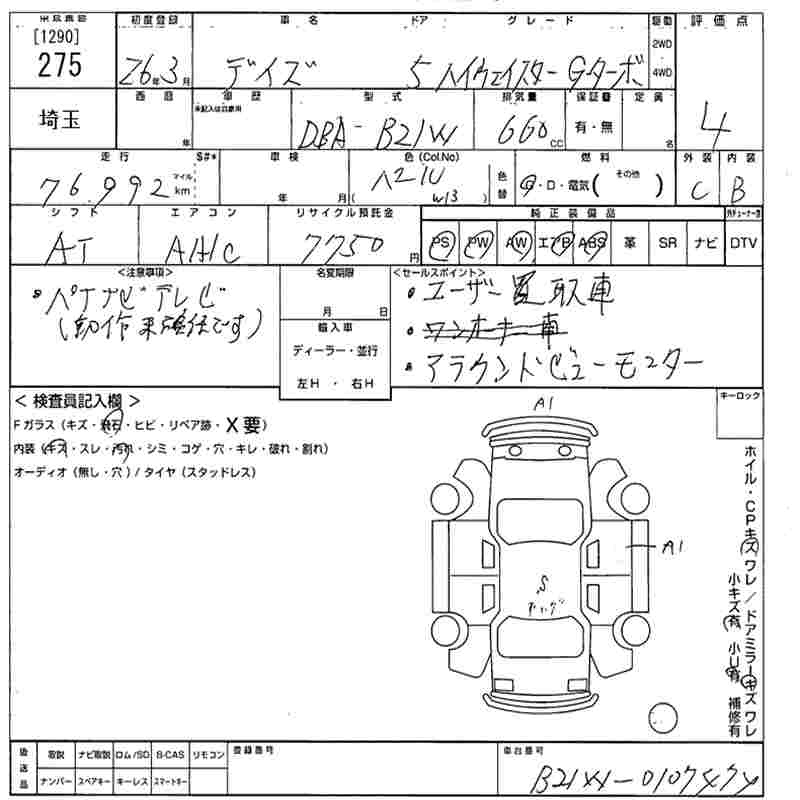 [1290] 初度登録 車名 ドア グレード 駆動 評価点
275 26年3月 デイズ 5 ハイウェイスター Gターボ 2WD 4WD
埼玉 西暦 年 車歴 未記入は自家用 型式 DBA-B21W 排気量 660 CC 保証書 有・無 定員 名 4
走行 76,992 マイル km S#* 車検 年 月 色(Col.No) ( W13 ) 色替 燃料 G・D・電気( その他 ) 外装 C 内装 B
シフト AT エアコン AAC リサイクル預託金 7750円 純正装備品 PS PW AW エアB ABS 革 SR ナビ DTV
<注意事項> 名変期限 <セールスポイント>
・ パナナビテレビ 月 日 ・ ユーザー買取車
(動作未確認です) 輸入車 ・ ワンオーナー車
ディーラー・並行 ・ アラウンドビューモニター
左H ・ 右H
< 検査員記入欄 > キーロック
Fガラス (キズ・飛石・ヒビ・リペア跡・X要)
内装 (キズ・スレ・汚れ・シミ・コゲ・穴・キレ・破れ・割れ)
オーディオ (無し・穴) / タイヤ (スタッドレス)
A1
A1
S
ホイル・CPキズ ワレ / ドアミラーキズ ワレ
小キズ有 小U有 補修有
後送品 取説 ナビ取説 ロム/SD B-CAS リモコン 登録番号 車台番号
ナンバー スペアキー キーレス スマートキー B21W-0107474